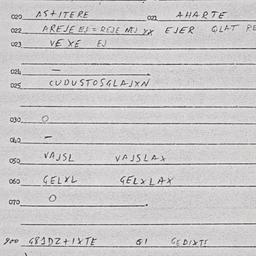 020 AS+ITERE 021 AHARTE
022 AREJE EJ = REJE XX EJER QLAT
023 VEXE EJ
024 —
025 CUDUSTOSGLAJXN
030 O
040 —
050 VAJSL VAJSLAX
060 GELXL GELXLAX
070 O
900 G81DZ+IXTE GI GEDIXTE